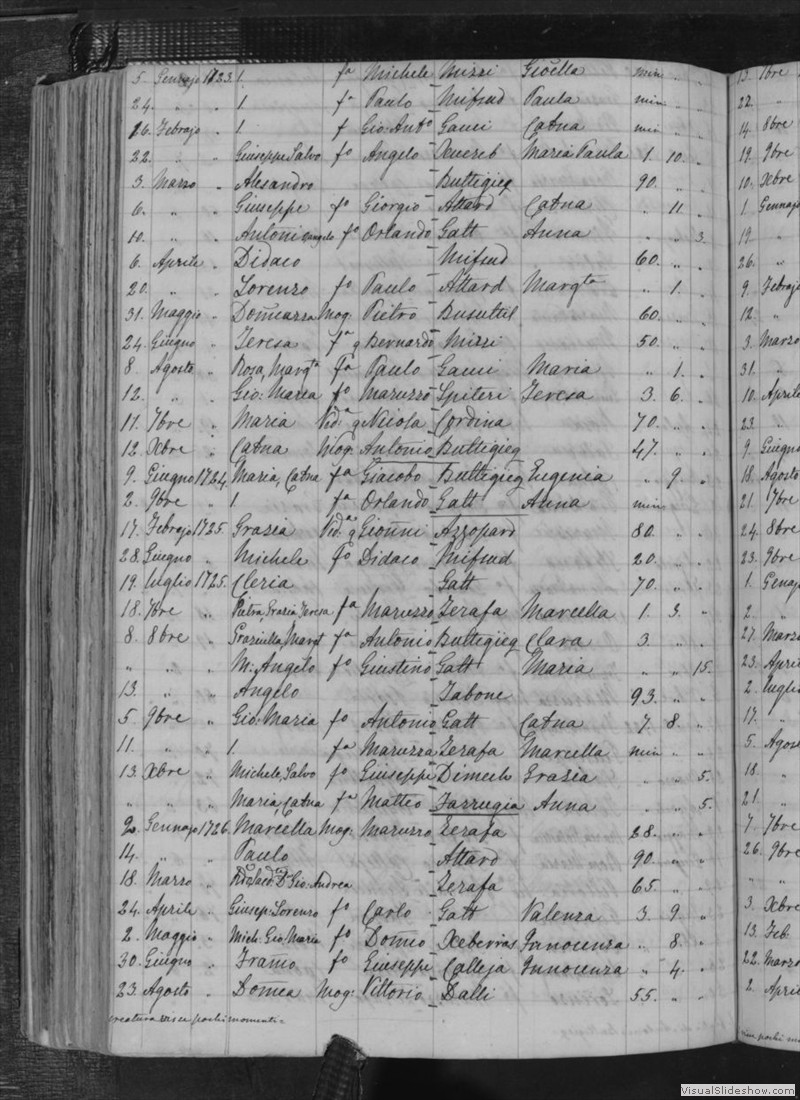 5. Gennajo 1723. 1. fa Michele Mizzi Gioella min „ „
24. „ „ 1 fa Paulo Mifsud Paula min „ „
26. Febrajo „ 1 f Gio: Anto Gauci Catna min „ „
22. „ „ Giuseppe, Salvo fo Angelo Xuereb Maria Paula 1. 10. „
3. Marzo „ Alesandro Buttigieg 90. „ „
6. „ „ Giuseppe fo Giorgio Attard Catna „ 11. „
10. „ „ Antoni Angelo fo Orlando Gatt Anna „ „ 3.
6. Aprile „ Didaco Mifsud 60. „ „
20. „ „ Lorenzo fo Paulo Attard Margta „ 1. „
31. Maggio „ Mog: Pietro Busuttil 60. „ „
24. Giugno „ Teresa fa q Bernardo Mizzi 50. „ „
8. Agosto „ Rosa, Margta fa Paulo Gauci Maria „ 1. „
12. „ „ Gio: Maria fo Maruzzo Spiteri Teresa 3. 6. „
11. 7bre „ Maria Vid:a q Nicola Cordina 70. „ „
12. Xbre „ Catna Mog: Antonio Buttigieg 47. „ „
9. Giugno 1724. Maria, Catna fa Giacobo Buttigieg Eugenia „ 9. „
2. 9bre „ 1 fa Orlando Gatt Anna min „ „
17. Febrajo 1725. Grazia Vid:a q Gionni Azzopard 80. „ „
28. Giugno „ Michele fo Didaco Mifsud 20. „ „
19. Luglio 1725. Cleria Gatt 70. „ „
18. 7bre „ Pietra, Grazia, Teresa fa Maruzzo Zerafa Marcella 1. 3. „
8. 8bre „ Graziulla, Margt fa Antonio Buttigieg Clara 3. „ „
„ „ „ M: Angelo fo Giustino Gatt Maria „ „ 15.
13. „ „ Angelo Zabone 93. „ „
5. 9bre „ Gio: Maria fo Antonio Gatt Catna 7. 8. „
11. „ „ 1. fa Maruzza Zerafa Marcella min „ „
13. Xbre „ Michele, Salvo fo Giuseppe Dimech Grazia „ „ 5.
„ „ „ Maria, Catna fa Matteo Farrugia Anna „ „ 5.
2. Gennajo 1726. Marcella Mog: Maruzzo Zerafa 28. „ „
14. „ „ Paulo Attard 90. „ „
18. Marzo „ Dn Gio: Andrea Zerafa 65. „ „
24. Aprile „ Giusep: Lorenzo fo Carlo Gatt Valenza 3. 9. „
2. Maggio „ Mich: Gio Maria fo Domco Xeberras Innocenza „ 8. „
30. Giugno „ fo Giuseppe Calleja Innocenza „ 4. „
23. Agosto „ Domca Mog: Vittorio Dalli 55. „ „
creatura pochi momenti =
13. 1bre
22. „
14. 8bre
19. 9bre
10. Xbre
1. Gennajo
19. „
26. „
9. Febrajo
12. „
3. Marzo
31. „
10. Aprile
23. „
9. Giugno
18. Agosto
21. 7bre
24. 8bre
23. 9bre
1. Genajo
2. „
27. Marzo
23. Aprile
2. Luglio
17. „
5. Agosto
18. „
21. „
7. 7bre
26. 9bre
„ „
3. Xbre
13. Feb.
22. Marzo
2. Aprile
pochi mo
VisualSlideshow.com